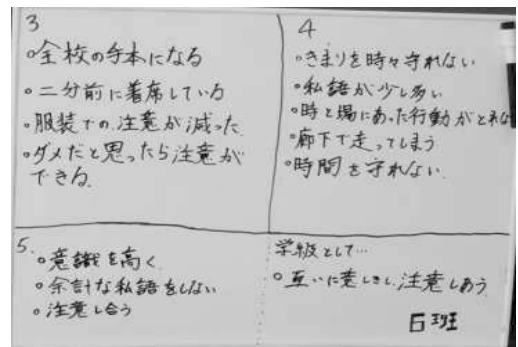 3
○全校の手本になる
○二分前に着席している
○服装での注意が減った
○ダメだと思ったら注意が
できる
4
○きまりを時々守れない
○私語が少し多い
○時と場にあった行動がとれな
○廊下で走ってしまう
○時間を守れない
5.
○意識を高く
○余計な私語をしない
○注意し合う
学級として…
○互いに 注意しあう
6班